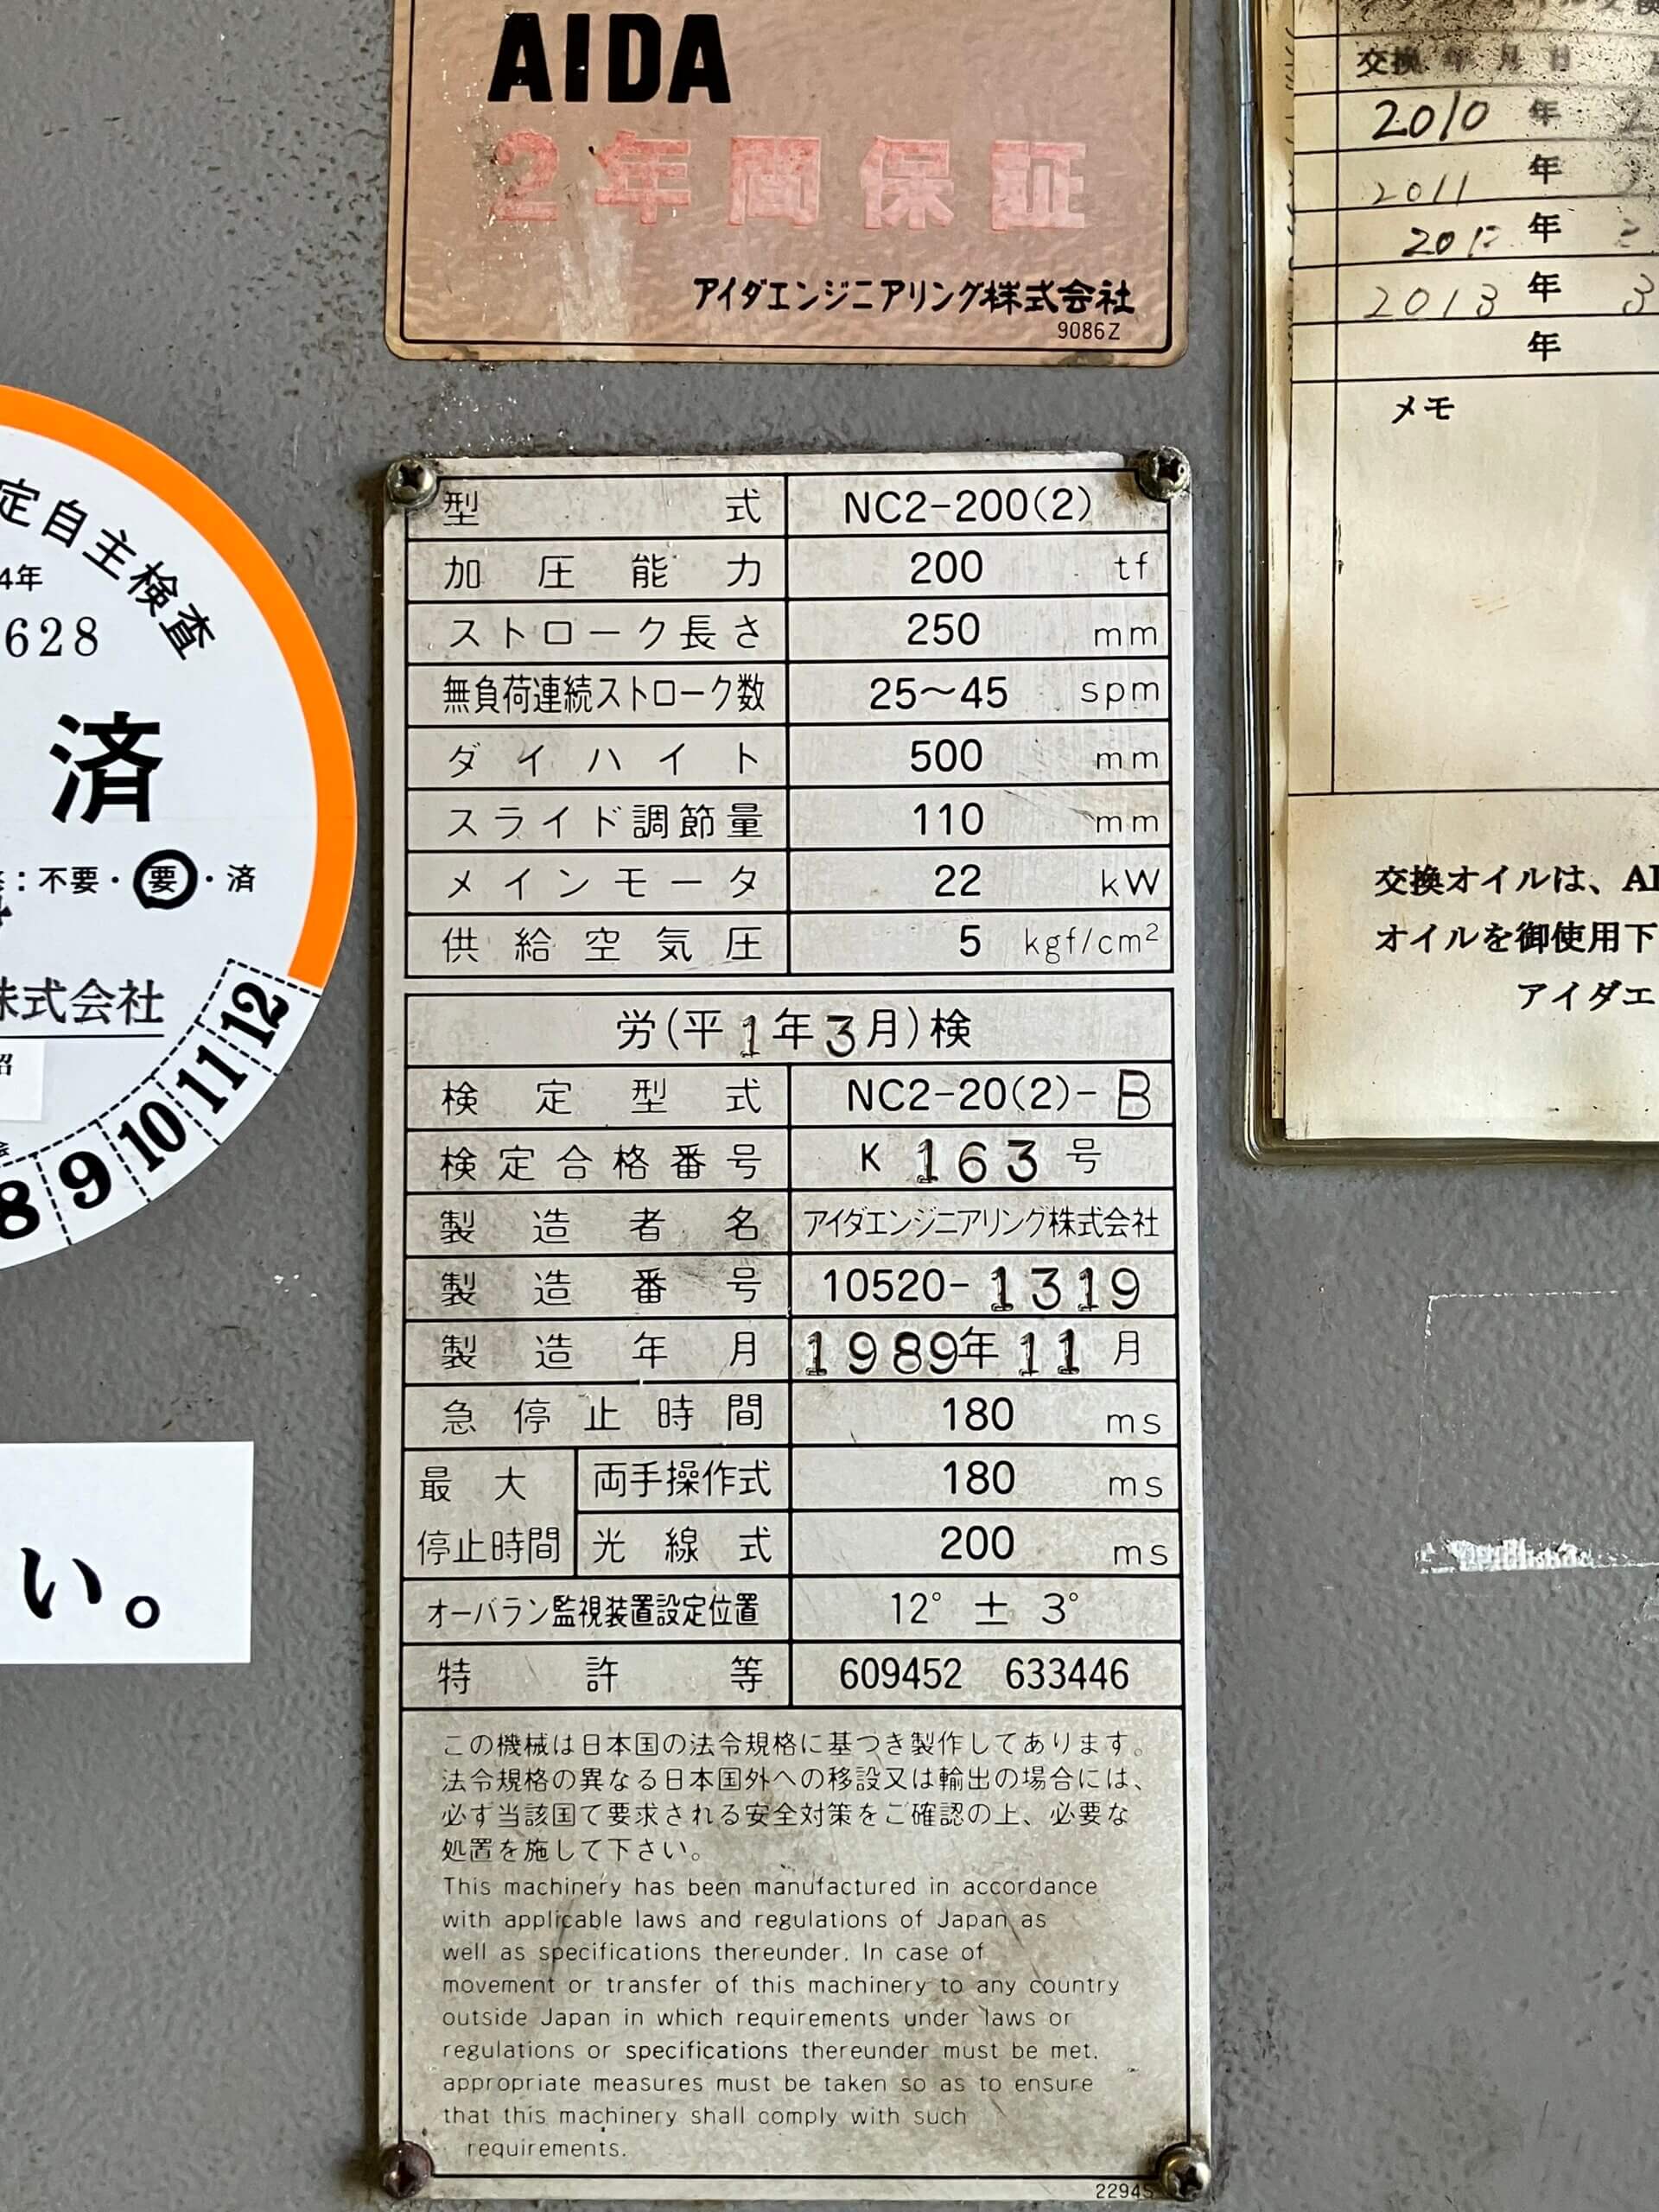 AIDA
2年間保証
アイダエンジニアリング株式会社
9086Z
交換年月日
2010 年
2011 年
年
2013 年 3
年
メモ
交換オイルは、AI
オイルを御使用下
アイダエ
定自主検査
4年
628
済
:不要・要・済
株式会社
12
11
10
9
8
い。
型式 NC2-200(2)
加圧能力 200 tf
ストローク長さ 250 mm
無負荷連続ストローク数 25〜45 spm
ダイハイト 500 mm
スライド調節量 110 mm
メインモータ 22 kW
供給空気圧 5 kgf/cm²
労(平1年3月)検
検定型式 NC2-20(2)-B
検定合格番号 K 163 号
製造者名 アイダエンジニアリング株式会社
製造番号 10520-1319
製造年月 1989年11月
急停止時間 180 ms
最大停止時間 両手操作式 180 ms
光線式 200 ms
オーバラン監視装置設定位置 12° ± 3°
特許等 609452 633446
この機械は日本国の法令規格に基つき製作してあります。
法令規格の異なる日本国外への移設又は輸出の場合には、
必ず当該国て要求される安全対策をご確認の上、必要な
処置を施して下さい。
This machinery has been manufactured in accordance
with applicable laws and regulations of Japan as
well as specifications thereunder. In case of
movement or transfer of this machinery to any country
outside Japan in which requirements under laws or
regulations or specifications thereunder must be met,
appropriate measures must be taken so as to ensure
that this machinery shall comply with such
requirements.
2294S